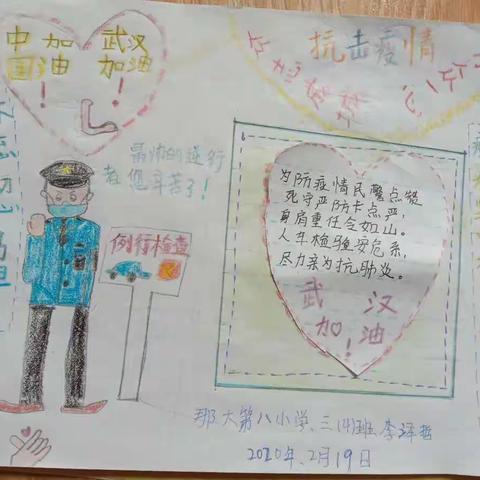 中 加 武汉
国 油 加油
! !
抗击疫情
众志成城
众一心
最帅的逆行
者 您辛苦了!
例行检查
为防疫情民警点赞
死守严防卡点严,
身肩重任令如山。
人车检验安危系,
尽力亲为抗肺炎。
武 汉
加 油!
那大第八小学、三(4)班 李泽哲
2020年2月19日
不忘
初心